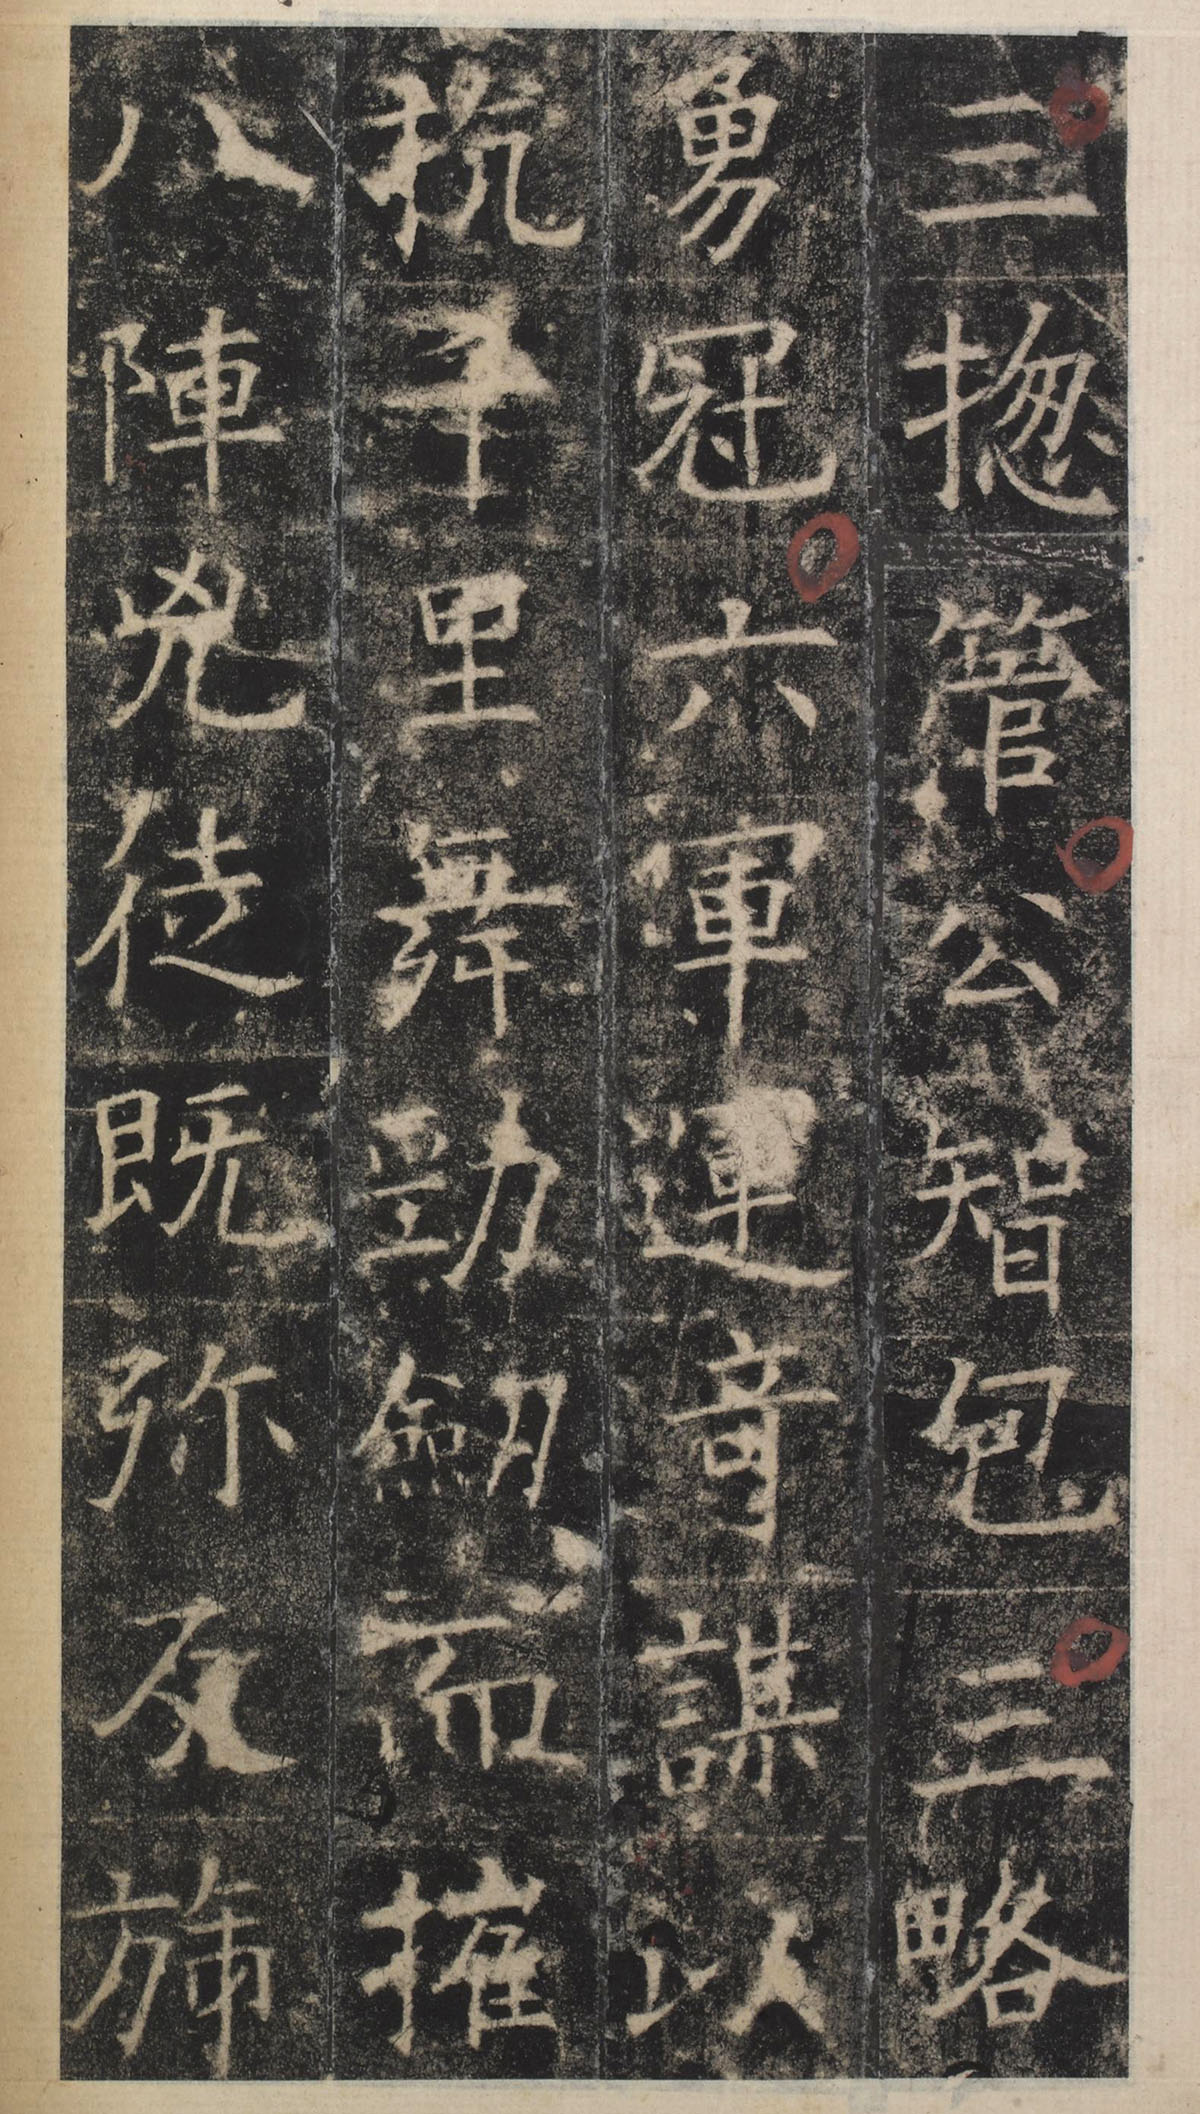 三揔管公智包三略
勇冠六軍運奇謀以
抗千里舞勁劒而摧
八陣兇徒既弥反旆